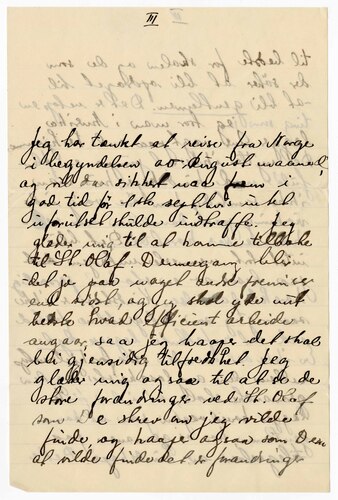 III
Jeg har tænkt at reise fra Norge
i begyndelsen av August maaned,
og vil da sikkert være frem i
god tid før 1ste septbr, intet
uforutset skulde indtræffe. Jeg
glæder mig til at komme tilbake
til St. Olaf. Dennegang blir
det jo paa meget andre
end sidst, og jeg skal yde mit
bedste hvad Efficient arbeide
angaar, saa jeg haaper det skal
bli gjensidig tilfredshet. Jeg
glæder mig ogsaa til at se de
store forandringer ved St. Olaf
som De skrev om jeg vilde
finde og haaper ogsaa som Dem
at vilde finde det forandringer